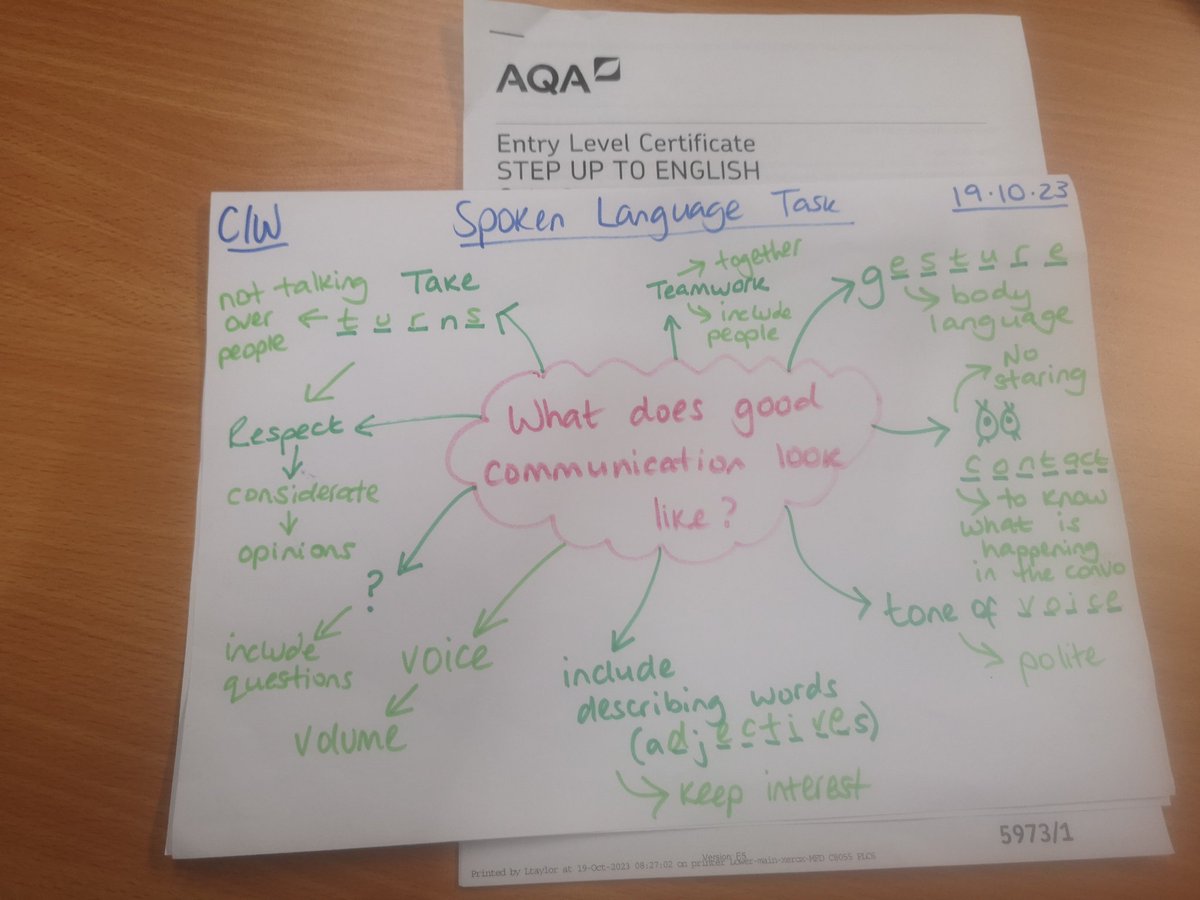 AQA
Entry Level Certificate
STEP UP TO ENGLISH
C/W
Spoken Language Task
19.10.23
not talking
over
people
Take
turns
Teamwork
together
include
people
gesture
body
language
No
staring
contact
to know
what is
happening
in the convo
Respect
considerate
opinions
What does good
communication look
like?
?
include
questions
voice
volume
include
describing words
(adjectives)
keep interest
tone of voice
polite
5973/1
Version E5
Printed by Ltaylor at 19-Oct-2023 08:27:02 on printer Lower-main-xerox-MFD C8055 PLCS